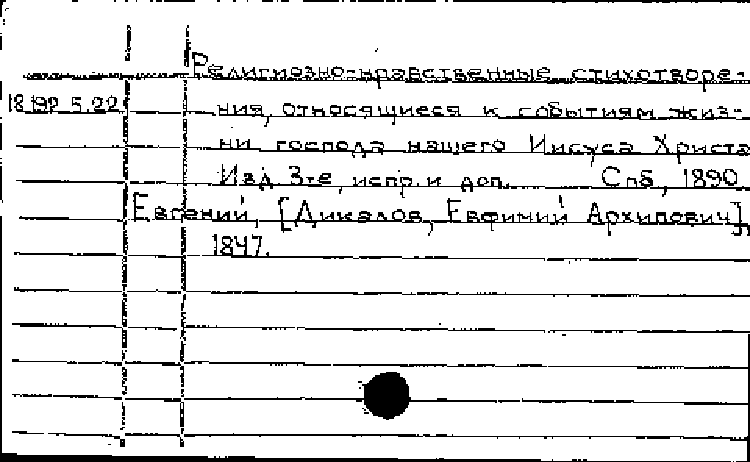 Религиозно-нравственные стихотворе-
18.192.5.22
ния, относящиеся к событиям жиз-
ни господа нашего Иисуса Христа
Изд. 3-е, испр. и доп. Спб, 1890.
Евгений, [Дикалов, Евфимий Архипович],
1847.